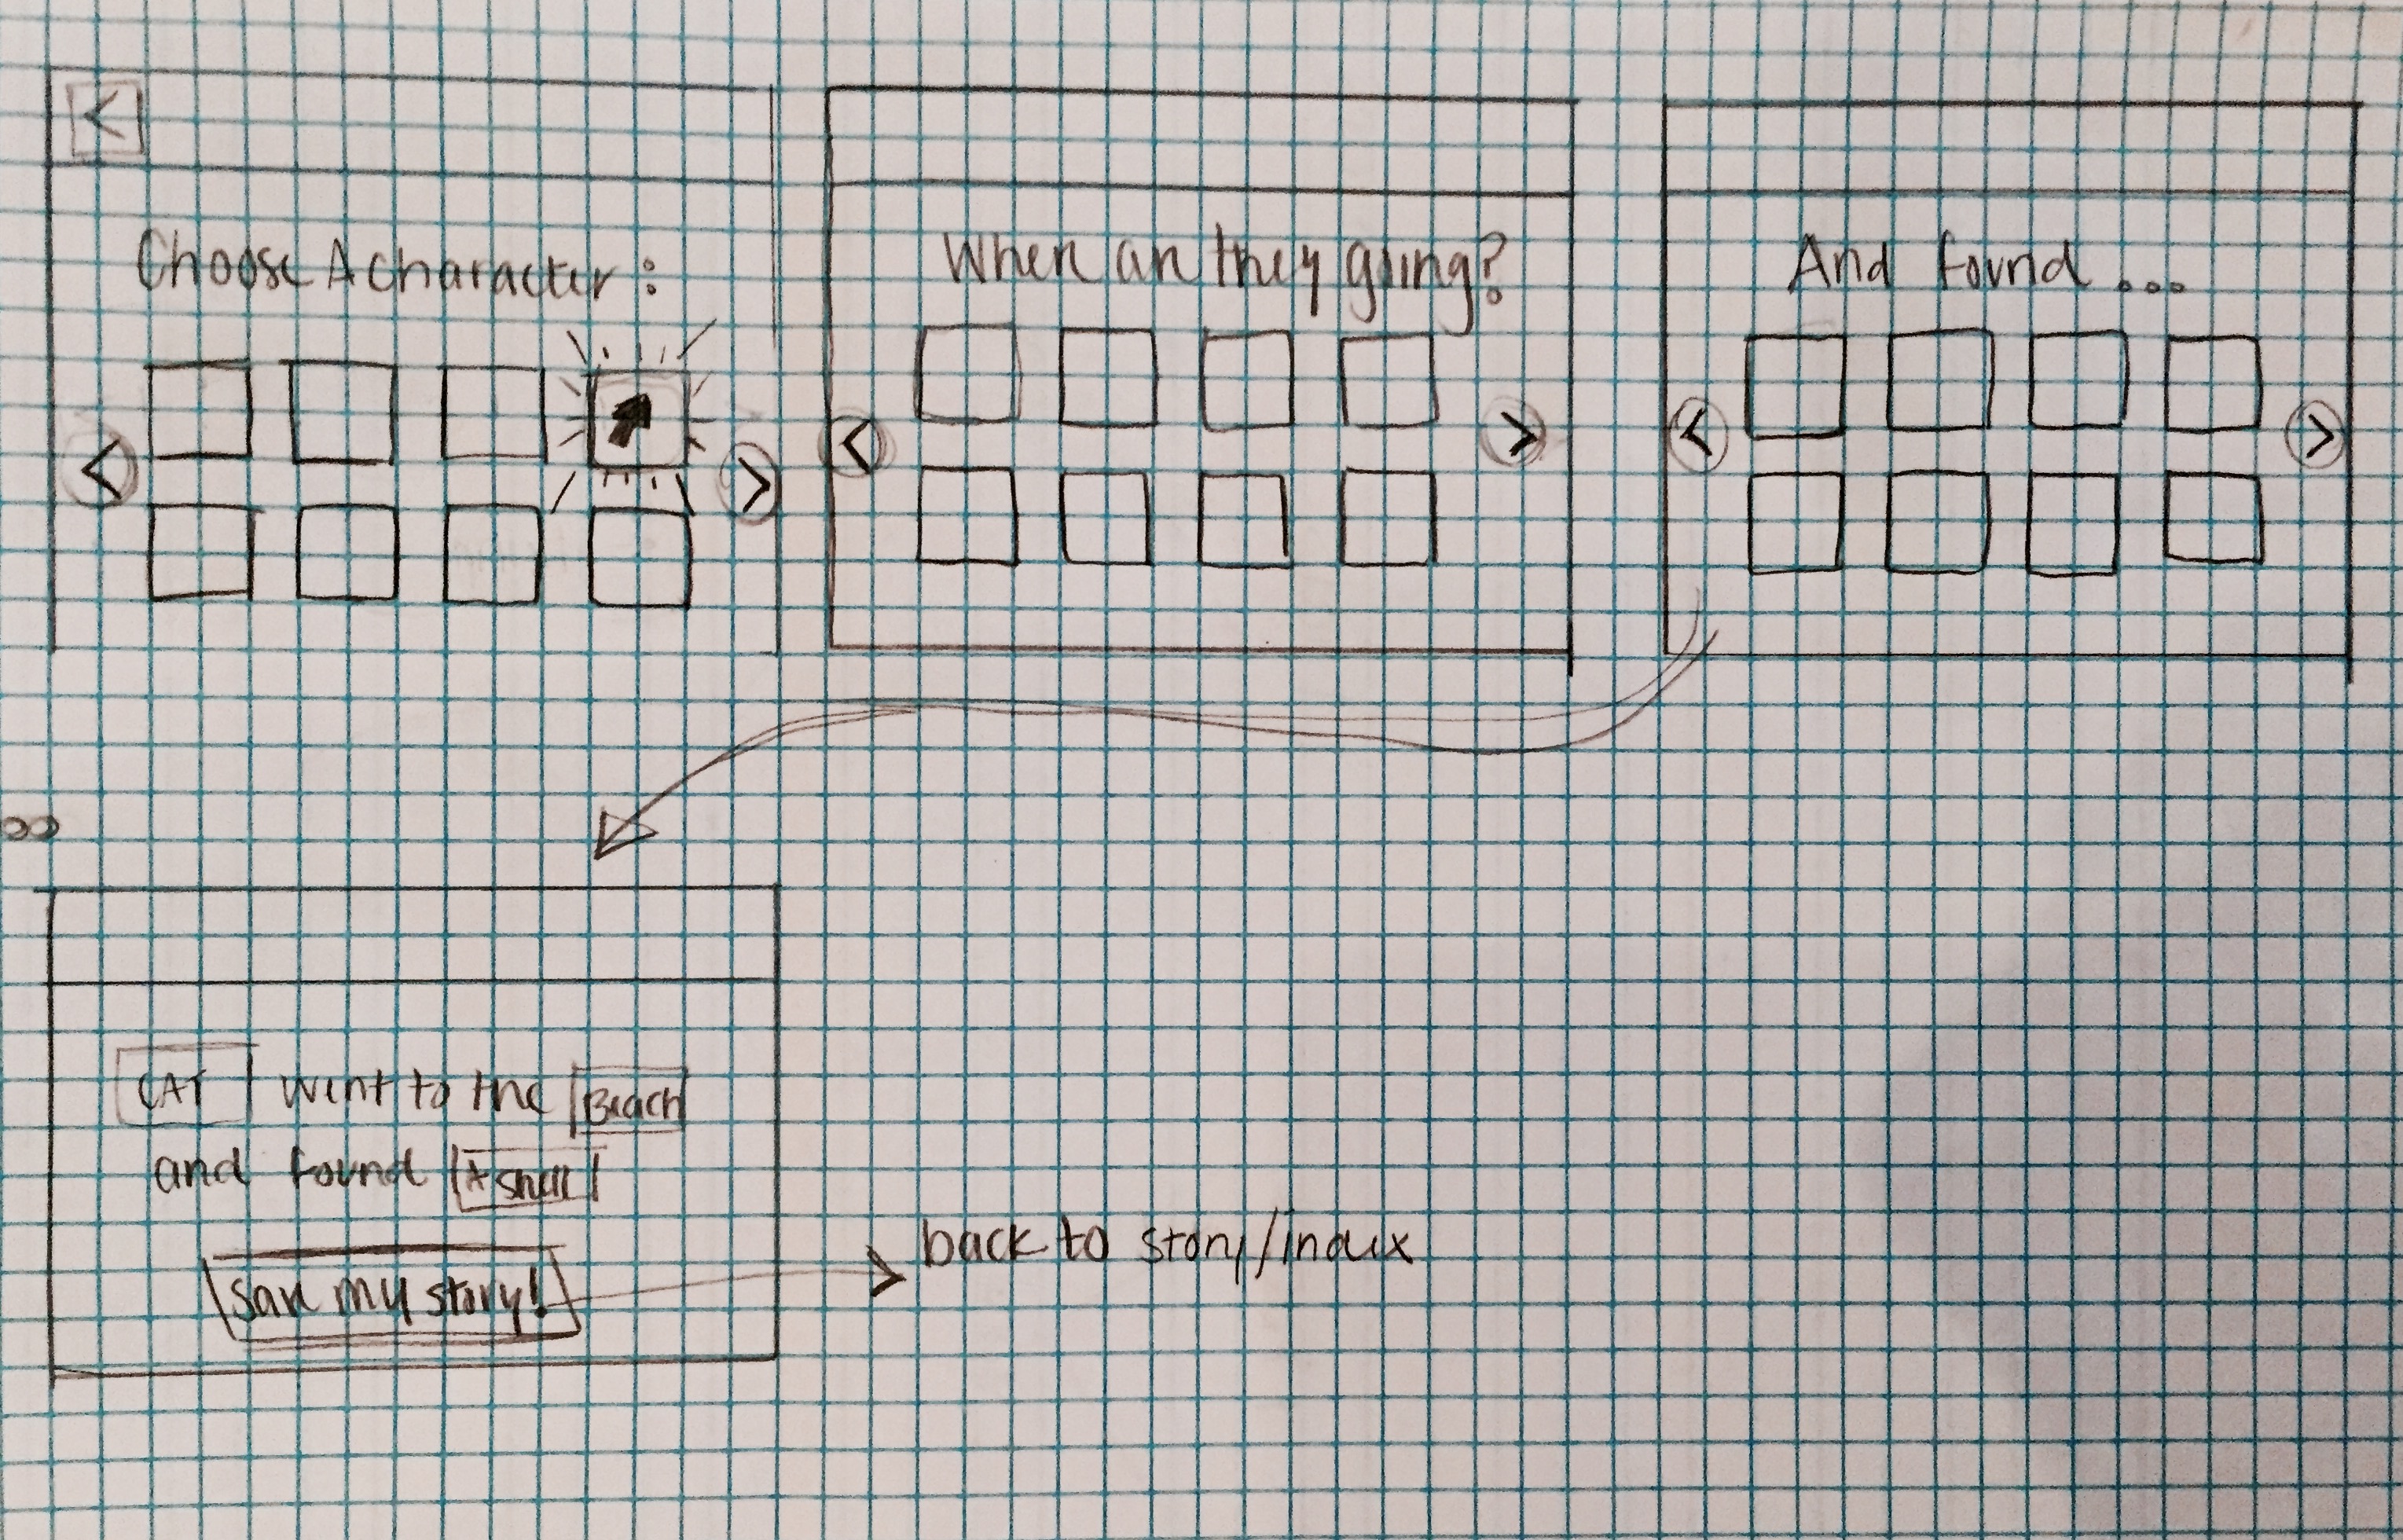 <
Choose A character :
< >
Where are they going?
< >
And found ...
< >
CAT went to the Beach
and found A shell
Save my story!
back to story/index